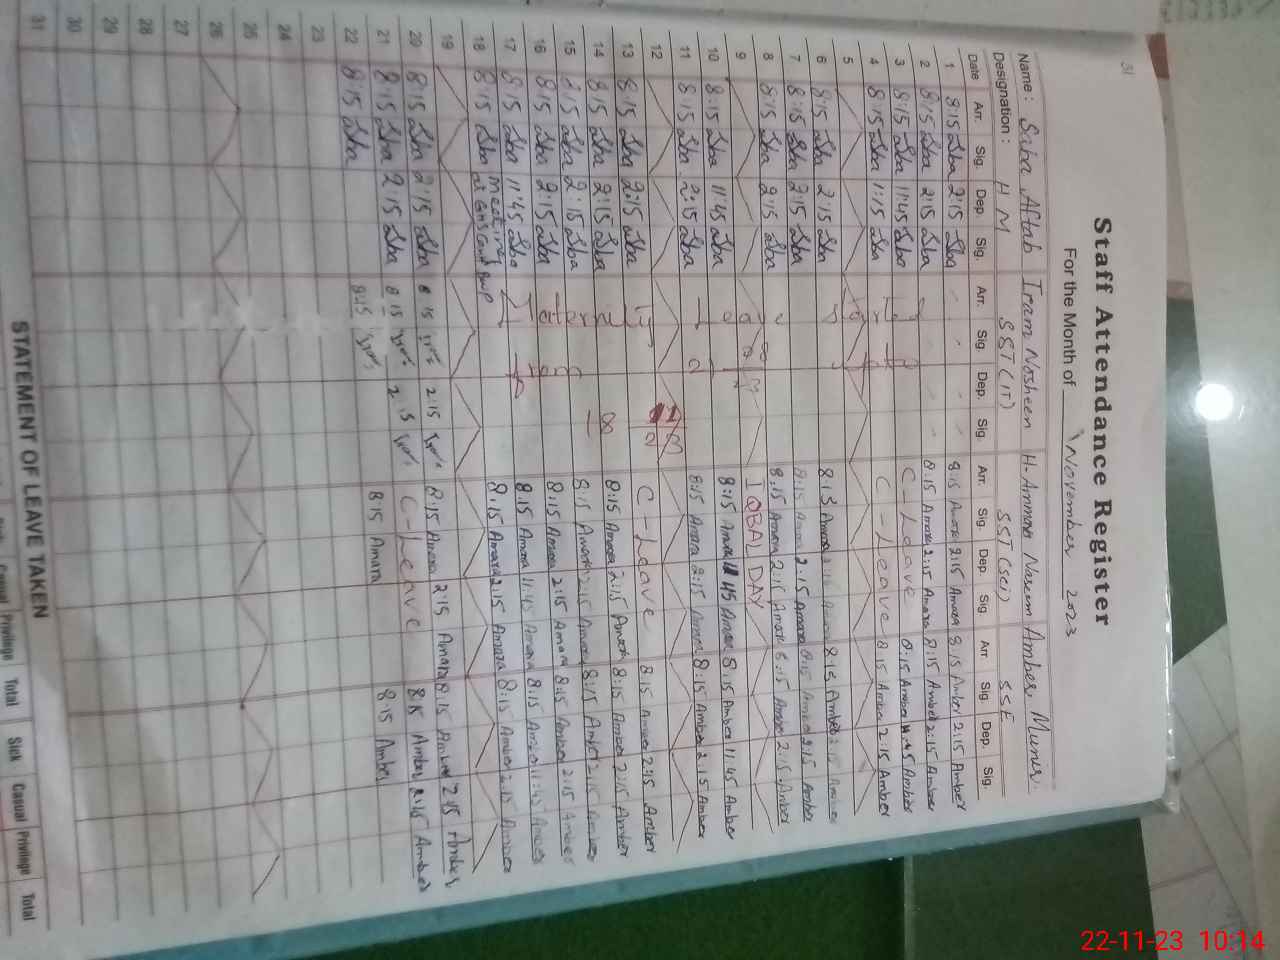 31
Staff Attendance Register
For the Month of November 2023
Name : Saba Aftab Iram Nosheen H. Ammara Naseem Amber Munir.
Designation : H M SST (IT) SST (Sci) SSE
Date Arr. Sig. Dep. Sig. Arr. Sig. Dep. Sig. Arr. Sig. Dep Sig Arr. Sig Dep. Sig.
1 8:15 Sba 2:15 Sba 8:15 Amara 2:15 Amara 8:15 Amber 2:15 Amber
2 8:15 Sba 2:15 Sba 8:15 Amara 2:15 Amara 8:15 Amber 2:15 Amber
3 8:15 Sba 11:45 Sba C - Leave 8:15 Amber 11:45 Amber
4 8:15 Sba 1:15 Sba C - Leave 8:15 Amber 2:15 Amber
5
6 8:15 Sba 2:15 Sba 8:15 Amara 2:15 Amara 8:15 Amber 2:15 Amber
7 8:15 Sba 2:15 Sba 8:15 Amara 2:15 Amara 8:15 Amber 2:15 Amber
8 8:15 Sba 2:15 Sba 8:15 Amara 2:15 Amara 8:15 Amber 2:15 Amber
9 IQBAL DAY
10 8:15 Sba 11:45 Sba 8:15 Amara 11:45 Amara 8:15 Amber 11:45 Amber
11 8:15 Sba 2:15 Sba 8:15 Amara 2:15 Amara 8:15 Amber 2:15 Amber
12
13 8:15 Sba 2:15 Sba C - Leave 8:15 Amber 2:15 Amber
14 8:15 Sba 2:15 Sba 8:15 Amara 2:15 Amara 8:15 Amber 2:15 Amber
15 8:15 Sba 2:15 Sba 8:15 Amara 2:15 Amara 8:15 Amber 2:15 Amber
16 8:15 Sba 2:15 Sba 8:15 Amara 2:15 Amara 8:15 Amber 2:15 Amber
17 8:15 Sba 11:45 Sba 8:15 Amara 11:45 Amara 8:15 Amber 11:45 Amber
18 8:15 Sba meeting at 8:15 Amara 2:15 Amara 8:15 Amber 2:15 Amber
19
20 8:15 Sba 2:15 Sba 8 15 2:15 8:15 Amara 2:15 Amara 8:15 Amber 2:15 Amber
21 8:15 Sba 2:15 Sba 8 15 2 15 C - Leave 8:15 Amber 2:15 Amber
22 8:15 Sba 8:15 8:15 Amara 8:15 Amber
23
24
25
26
27
28
29
30
31
STATEMENT OF LEAVE TAKEN
Casual Privilege Total Sick Casual Privilege Total
22-11-23 10:14